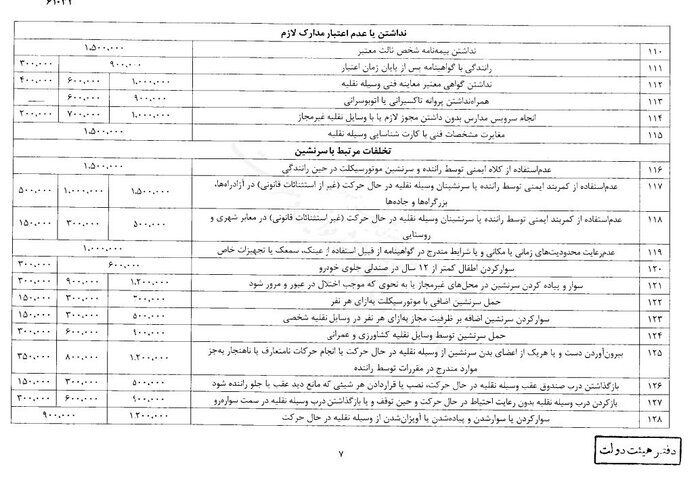 ۶۱۰۲۲
نداشتن یا عدم اعتبار مدارک لازم
۱۱۰ نداشتن بیمه‌نامه شخص ثالث معتبر ۱،۵۰۰،۰۰۰
۱۱۱ رانندگی با گواهینامه پس از پایان زمان اعتبار ۹۰۰،۰۰۰ ۳۰۰،۰۰۰
۱۱۲ نداشتن گواهی معتبر معاینه فنی وسیله نقلیه ۱،۰۰۰،۰۰۰ ۶۰۰،۰۰۰ ۴۰۰،۰۰۰
۱۱۳ همراه‌نداشتن پروانه تاکسیرانی یا اتوبوسرانی ۹۰۰،۰۰۰ ۶۰۰،۰۰۰ ــــ
۱۱۴ انجام سرویس مدارس بدون داشتن مجوز لازم یا با وسایل نقلیه غیرمجاز ۱،۰۰۰،۰۰۰ ۷۰۰،۰۰۰ ۲۰۰،۰۰۰
۱۱۵ مغایرت مشخصات فنی با کارت شناسایی وسیله نقلیه ۱،۵۰۰،۰۰۰
تخلفات مرتبط با سرنشین
۱۱۶ عدم‌استفاده از کلاه ایمنی توسط راننده و سرنشین موتورسیکلت در حین رانندگی ۱،۵۰۰،۰۰۰
۱۱۷ عدم‌استفاده از کمربند ایمنی توسط راننده یا سرنشینان وسیله نقلیه در حال حرکت (غیر از استثنائات قانونی) در آزادراه‌ها، ۱،۵۰۰،۰۰۰ ۱،۰۰۰،۰۰۰ ۵۰۰،۰۰۰
بزرگراه‌ها و جاده‌ها
۱۱۸ عدم‌استفاده از کمربند ایمنی توسط راننده یا سرنشینان وسیله نقلیه در حال حرکت (غیر استثنائات قانونی) در معابر شهری و ۵۰۰،۰۰۰ ۳۰۰،۰۰۰ ۱۵۰،۰۰۰
روستایی
۱۱۹ عدم‌رعایت محدودیت‌های زمانی یا مکانی و یا شرایط مندرج در گواهینامه از قبیل استفاده از عینک، سمعک یا تجهیزات خاص ۱،۰۰۰،۰۰۰
۱۲۰ سوارکردن اطفال کمتر از ۱۲ سال در صندلی جلوی خودرو ۶۰۰،۰۰۰ ۳۰۰،۰۰۰
۱۲۱ سوار و پیاده کردن سرنشین در محل‌های غیرمجاز یا به نحوی که موجب اختلال در عبور و مرور شود ۱،۲۰۰،۰۰۰ ۹۰۰،۰۰۰ ۳۰۰،۰۰۰
۱۲۲ حمل سرنشین اضافی با موتورسیکلت به‌ازای هر نفر ۳۰۰،۰۰۰ ۱۵۰،۰۰۰
۱۲۳ سوارکردن سرنشین اضافه بر ظرفیت مجاز به‌ازای هر نفر در وسایل نقلیه شخصی ۵۰۰،۰۰۰ ۳۰۰،۰۰۰ ۱۵۰،۰۰۰
۱۲۴ حمل سرنشین توسط وسایل نقلیه کشاورزی و عمرانی ۹۰۰،۰۰۰ ۶۰۰،۰۰۰ ۳۰۰،۰۰۰
۱۲۵ بیرون‌آوردن دست و یا هریک از اعضای بدن سرنشین از وسیله نقلیه در حال حرکت یا انجام حرکات نامتعارف یا ناهنجار به‌جز ۱،۲۰۰،۰۰۰ ۸۰۰،۰۰۰ ۳۵۰،۰۰۰
موارد مندرج در مقررات توسط راننده
۱۲۶ بازگذاشتن درب صندوق عقب وسیله نقلیه در حال حرکت، نصب یا قراردادن هر شیئی که مانع دید عقب یا جلو راننده شود ۵۰۰،۰۰۰ ۳۰۰،۰۰۰ ۱۵۰،۰۰۰
۱۲۷ بازکردن درب وسیله نقلیه بدون رعایت احتیاط در حال حرکت و حین توقف و یا بازگذاشتن درب وسیله نقلیه در سمت سواره‌رو ۹۰۰،۰۰۰ ۶۰۰،۰۰۰ ۳۰۰،۰۰۰
۱۲۸ سوارکردن یا سوارشدن و پیاده‌شدن یا آویزان‌شدن از وسیله نقلیه در حال حرکت ۱،۲۰۰،۰۰۰ ۹۰۰،۰۰۰
۷
دفتر هیئت دولت